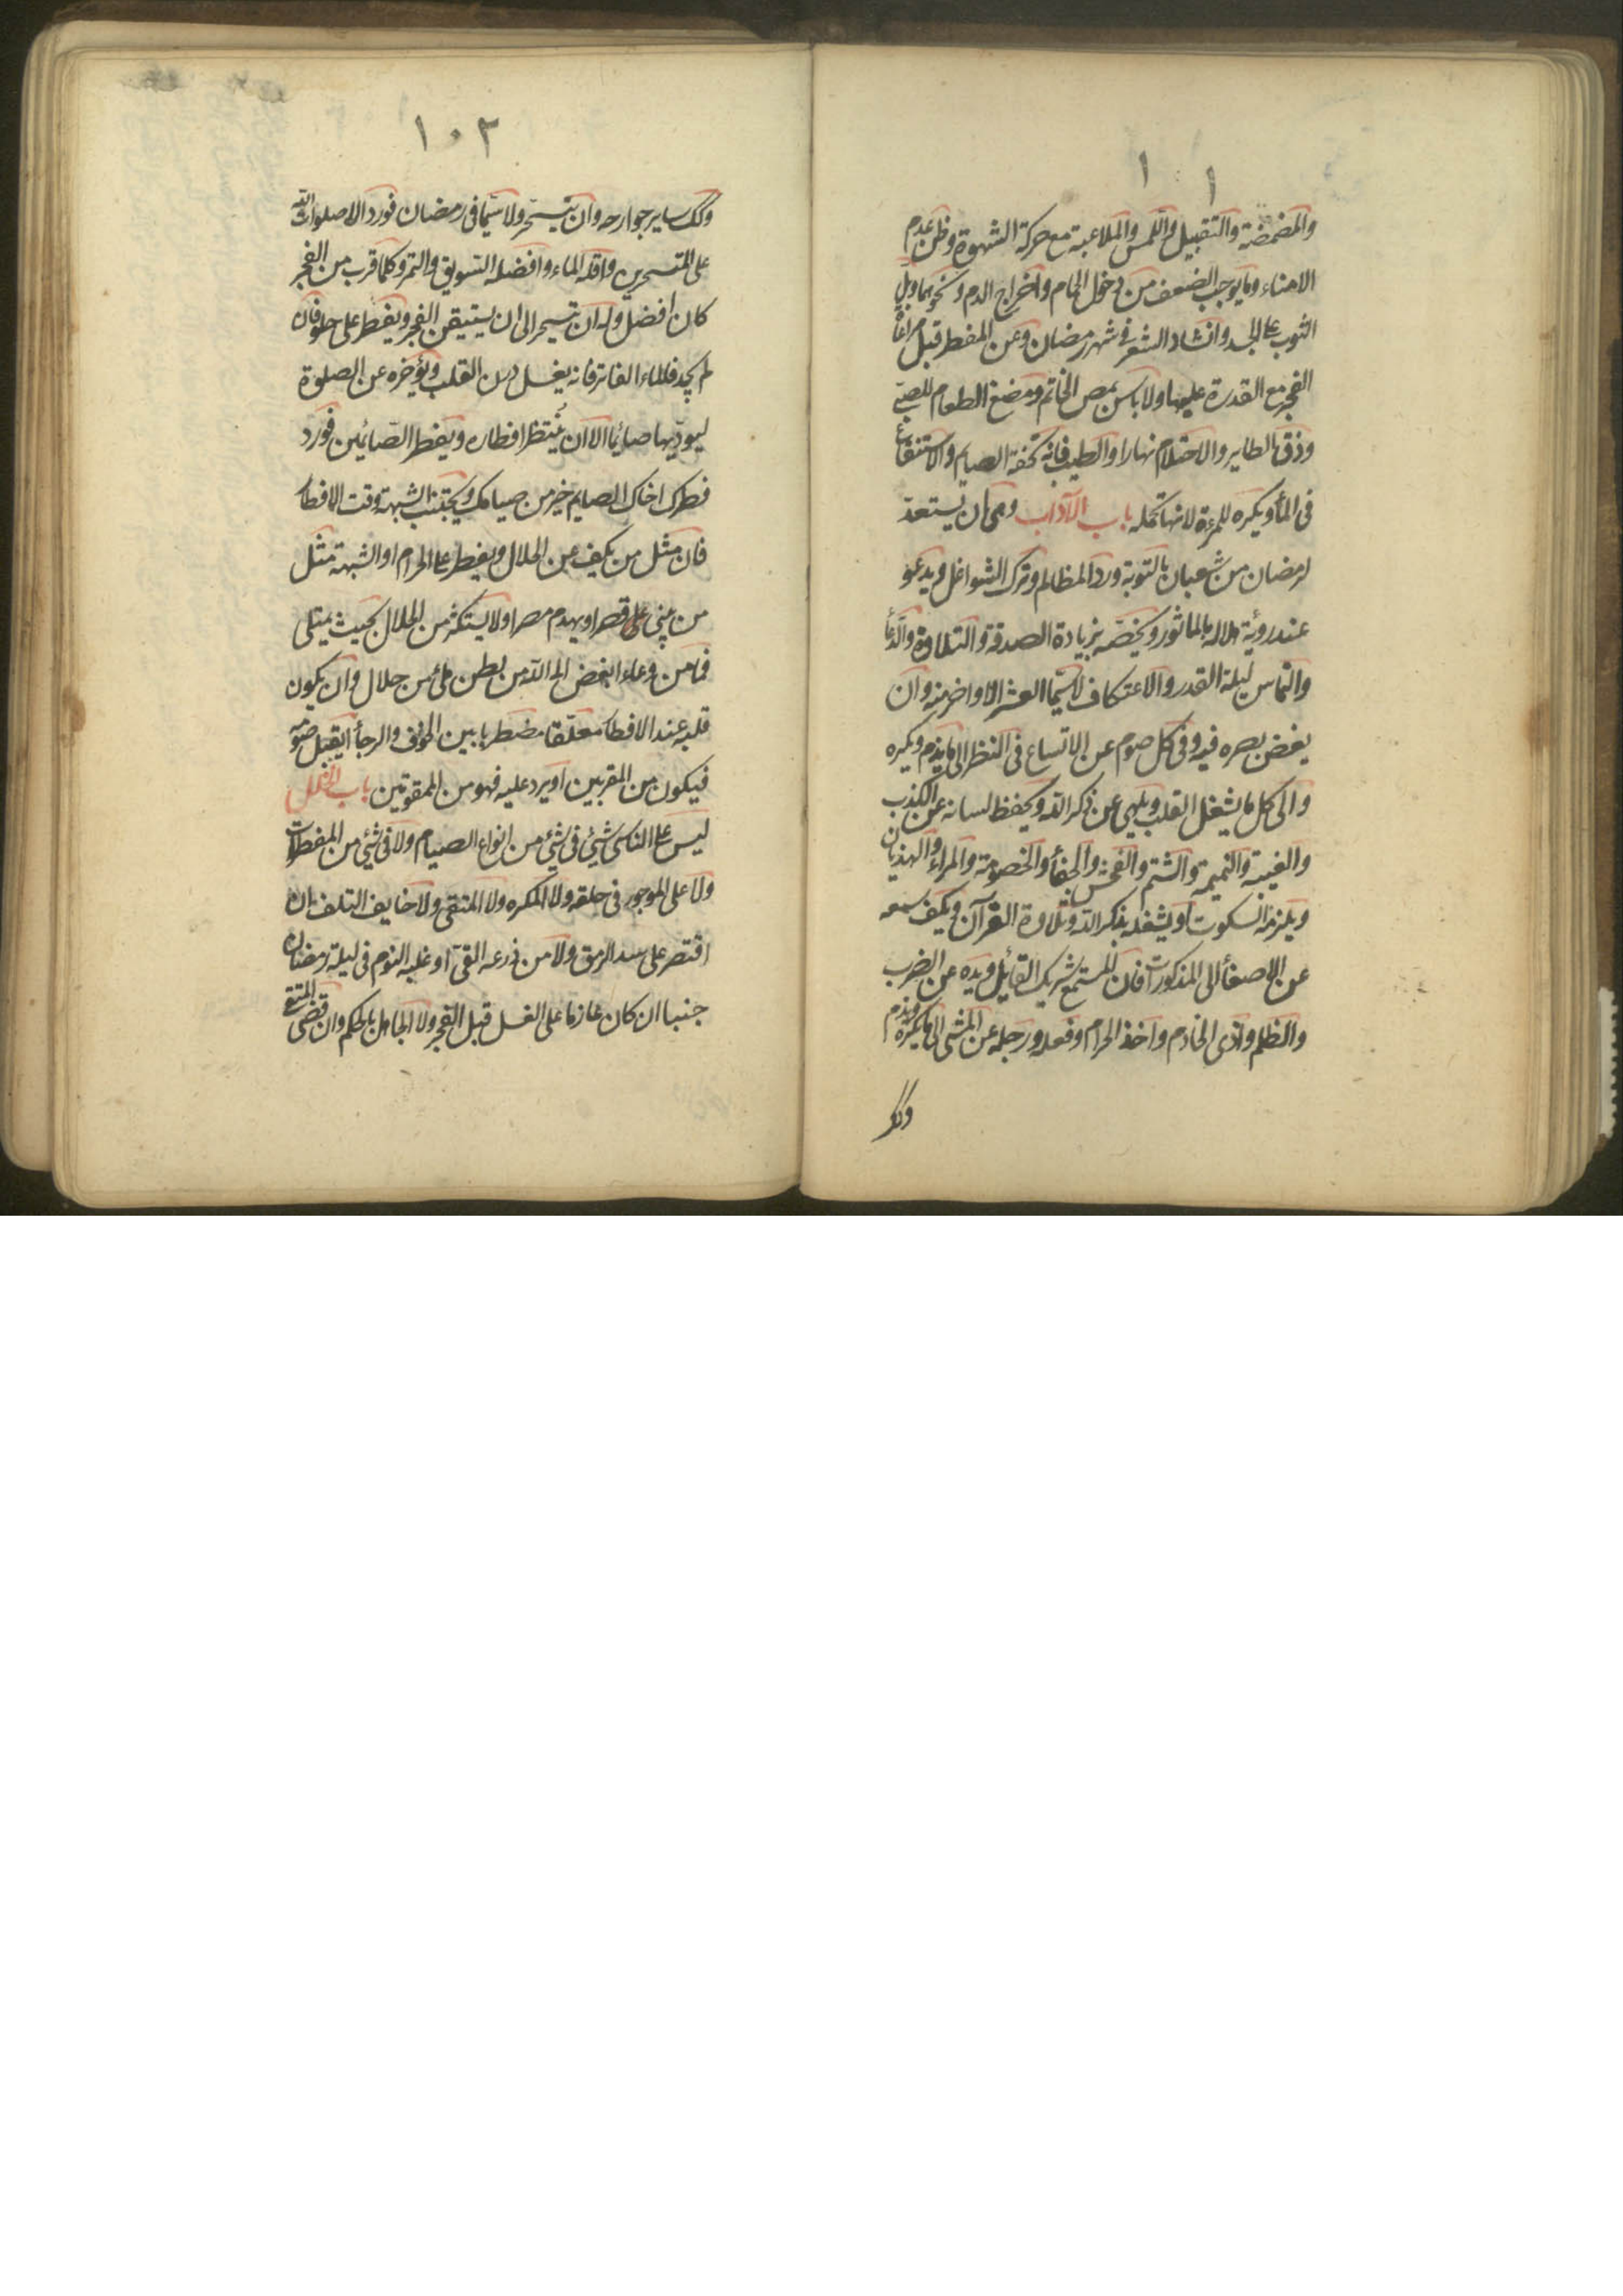 ١٠١
والمضمضة والتقبيل واللمس والملاعبة مع حركة الشهوة وظن عدم
الامناء وما يوجب الضعف من دخول الحمام واخراج الدم ونحوهما وبل
الثوب على الجسد وانشاد الشعر فى شهر رمضان وعن المفطر قبل مراعاة
الفجر مع القدرة عليها ولا باس بمص الخاتم ومضغ الطعام للصبى
وذق الطاير والاحتلام نهارا والطيب فانه تحفة الصايم والاستنقاع
فى الماء ويكره للمرءة لانها تحمله باب الآداب وهى ان يستعد
لرمضان من شعبان بالتوبة ورد المظالم وترك الشواغل ويدعو
عند رؤية هلاله بالماثور ويخصه بزيادة الصدقة والتلاوة والدعأ
والتماس ليلة القدر والاعتكاف لاسيما العشر الاواخر منه وان
يغض بصره فيه وفى كل صوم عن الاتساع فى النظر الى ما يذم ويكره
والى كل ما يشغل القلب ويلهى عن ذكر الله ويحفظ لسانه عن الكذب
والغيبة والنميمة والشتم والفحش والجفأ والخصومة والمراء والهذيان
ويلزمه السكوت او يشغله بذكر الله وتلاوة القرآن ويكف سمعه
عن الاصغأ الى المذكورات فان المستمع شريك القائل ويده عن الضرب
والظلم واذى الخادم واخذ الحرام وفعله ورجله عن المشى الى ما يكره ويذم
وكك
١٠٢
وكك ساير جوارحه وان يتسحر ولا سيما فى رمضان فورد الا صلوات الله
على المتسحرين واقله الماء وافضله السويق والتمر وكلما قرب من الفجر
كان افضل وله ان يتسحر الى ان يستيقن الفجر ويفطر على حلو فان
لم يجد فالماء الفاتر فانه يغسل درن القلب ويؤخره عن الصلوة
ليوديها صائما الا ان ينتظر افطاره ويفطر الصائمين فورد
فطرك اخاك الصايم خير من صيامك ويجتنب الشبهة وقت الافطار
فان مثل من يكف عن الحلال ويفطر على الحرام او الشبهة مثل
من يبنى قصرا ويهدم مصرا ولا يستكثر من الحلال بحيث يمتلى
فما من وعاء ابغض الى الله من بطن ملئ من حلال وان يكون
قلبه عند الافطار معلقا مضطربا بين الخوف والرجأ ايقبل صومه
فيكون من المقربين او يرد عليه فهو من الممقوتين باب الخلل
ليس على الناسى شئ فى شئ من انواع الصيام ولا فى شئ من المفطرات
ولا على الموجور فى حلقه ولا المكره ولا المتقى ولا خايف التلف ان
اقتصر على سد الرمق ولا من ذرعه القئ او غلبه النوم فى ليلة رمضان
جنبا ان كان عازما على الغسل قبل الفجر ولا الجاهل بالحكم وان قضى المتقى